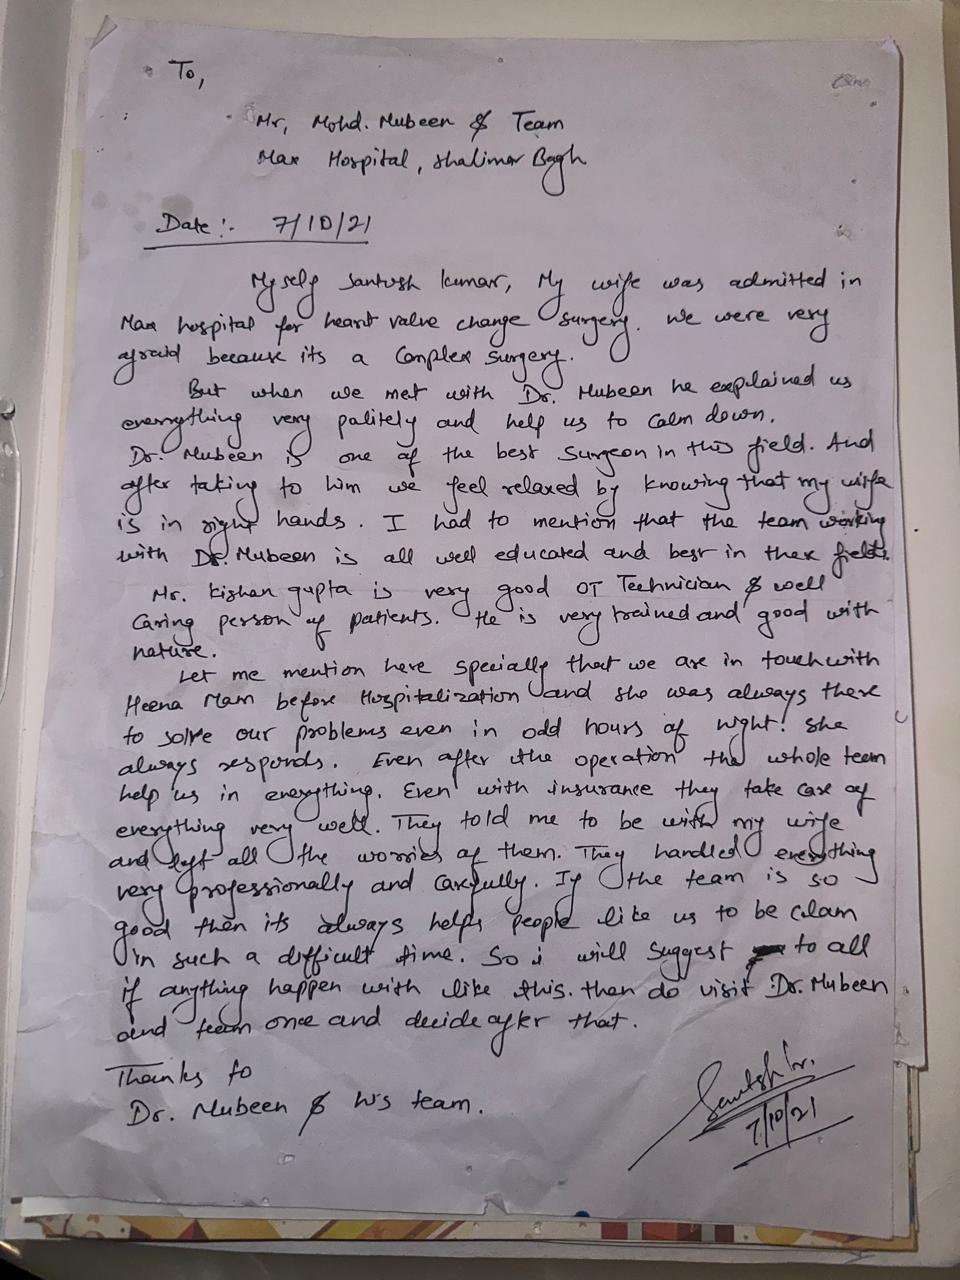 To,
Mr, Mohd. Mubeen & Team
Max Hospital, Shalimar Bagh
Date :- 7/10/21
My self Santosh kumar, My wife was admitted in
Max hospital for heart valve change surgery. We were very
afraid because its a Complex surgery.
But when we met with Dr. Mubeen he explained us
everything very palitely and help us to Calm down.
Dr. Mubeen is one of the best Surgeon in this field. And
after taking to him we feel relaxed by knowing that my wife
is in right hands. I had to mention that the team working
with Dr. Mubeen is all well educated and best in their field.
Mr. Kishan gupta is very good OT Technician & well
Caring person of patients. He is very trained and good with
nature.
Let me mention here specially that we are in touch with
Heena Mam before Hospitalization and she was always there
to solve our problems even in odd hours of night! She
always responds. Even after the operation the whole team
help us in everything. Even with insurance they take care of
everything very well. They told me to be with my wife
and left all the worries of them. They handled everything
very professionally and Carefully. If the team is so
good then its always helps people like us to be clam
in such a difficult time. So i will suggest to all
if anything happen with like this. then do visit Dr. Mubeen
and team once and decide after that.
Thanks to
Dr. Mubeen & his team.
Santosh kr.
7/10/21